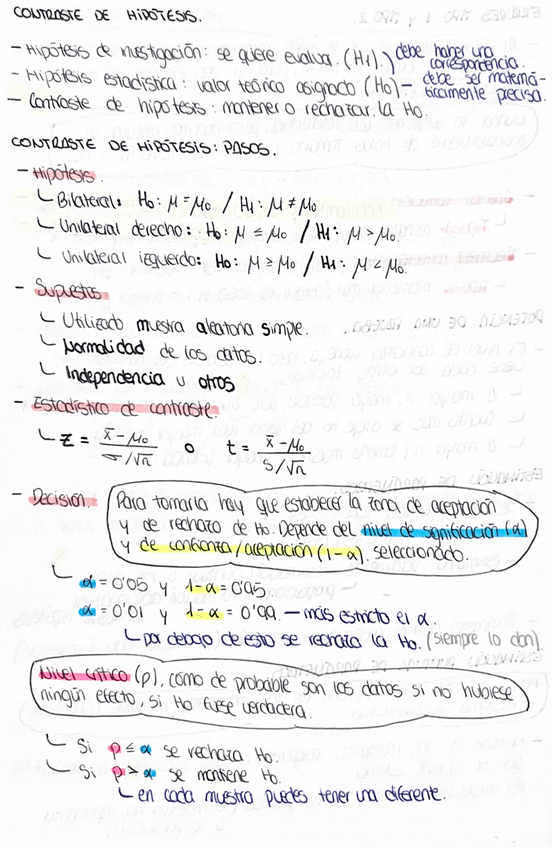 CONTRASTE DE HIPÓTESIS.
- Hipótesis de investigación: se quiere evaluar. (H1). debe haber una correspondencia.
- Hipótesis estadística: valor teórico asignado (H0) - debe ser matemáticamente precisa.
- Contraste de hipótesis: mantener o rechazar la H0.
CONTRASTE DE HIPÓTESIS: PASOS.
- Hipótesis.
Bilateral: H0: μ = μ0 / H1: μ ≠ μ0
Unilateral derecho: H0: μ ≤ μ0 / H1: μ > μ0.
Unilateral izquierdo: H0: μ ≥ μ0 / H1: μ < μ0.
- Supuestos
Utilizado muestra aleatoria simple.
Normalidad de los datos.
Independencia u otros
- Estadístico de contraste.
z = x̄ - μ0 / σ/√n o t = x̄ - μ0 / s/√n
- Decisión.
Para tomarla hay que establecer la zona de aceptación
y de rechazo de H0. Depende del nivel de significación (α)
y de confianza/aceptación (1-α), seleccionado.
α = 0'05 y 1-α = 0'95
α = 0'01 y 1-α = 0'99. — más estricto el α.
por debajo de esto se rechaza la H0. (siempre lo dan).
Nivel crítico (p), cómo de probable son los datos si no hubiese
ningún efecto, si H0 fuese verdadera.
Si p ≤ α se rechaza H0.
Si p > α se mantiene H0.
en cada muestra puedes tener una diferente.